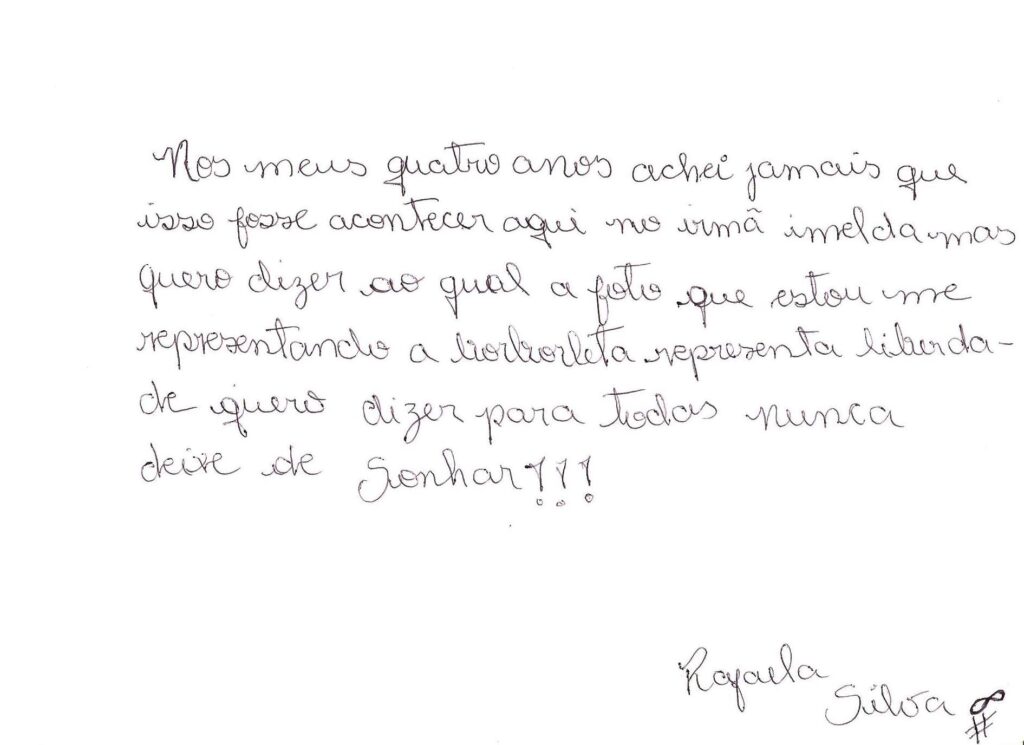 Nos meus quatro anos achei jamais que
isso fosse acontecer aqui no irmã imelda mas
quero dizer ao qual a foto que estou me
representando a borborleta representa liberda-
de quero dizer para todas nunca
deixe de sonhar!!!
Rafaela
Silva
#